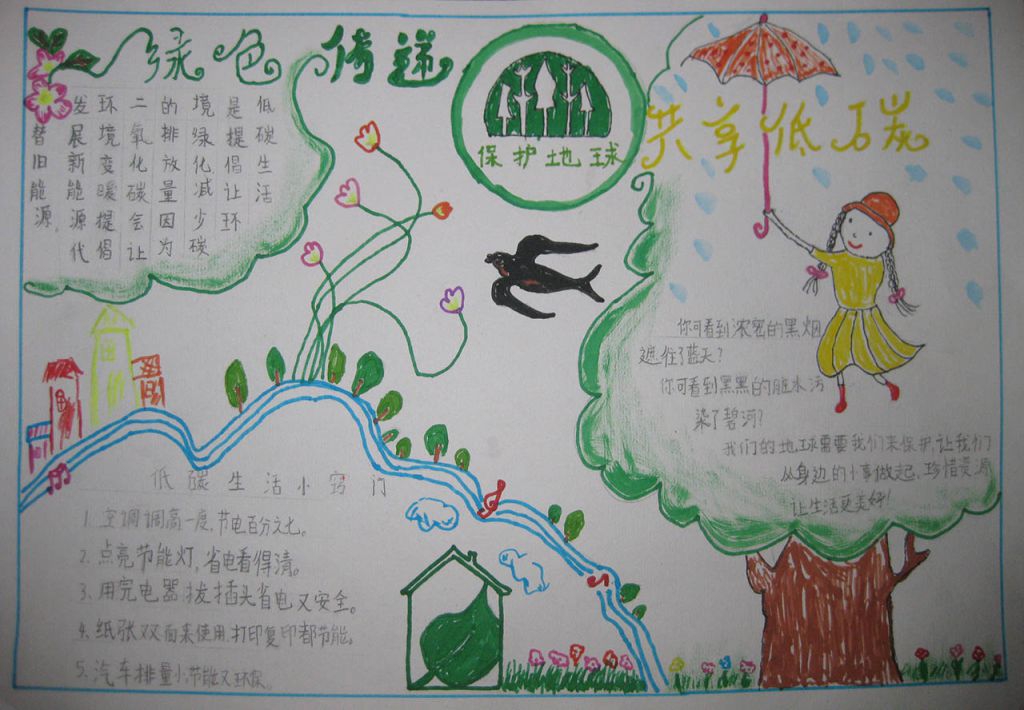 绿色传递
保护地球
共享低碳
低碳生活
是提倡让环
境绿化,减少碳
的排放量因为
二氧化碳会让
环境变暖提倡
发展新能源代
替旧能源,
你可看到浓密的黑烟
遮住了蓝天?
你可看到黑黑的脏水污
染了碧河?
我们的地球需要我们来保护,让我们
从身边的小事做起,珍惜资源
让生活更美好!
低碳生活小窍门
1. 空调调高一度,节电百分之七。
2. 点亮节能灯,省电看得清。
3. 用完电器拔插头省电又安全。
4. 纸张双面来使用,打印复印都节能。
5. 汽车排量小,节能又环保。